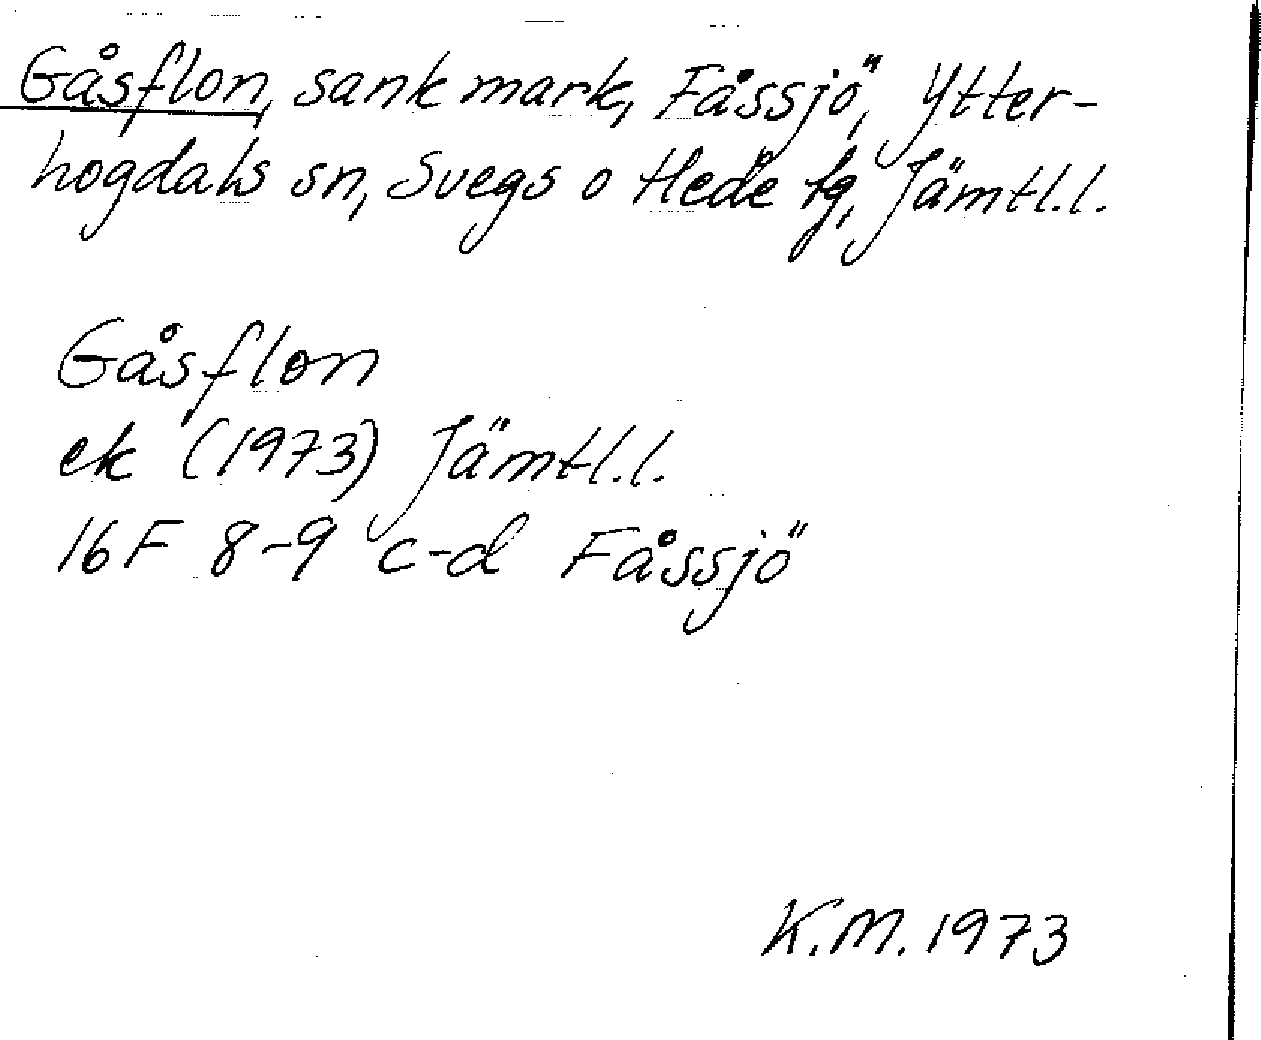 Gåsflon, sank mark, Fåssjö, Ytter-
hogdals sn, Svegs o Hede tg, Jämtl.l.
Gåsflon
ek (1973) Jämtl.l.
16F 8-9 c-d Fåssjö
K.M. 1973